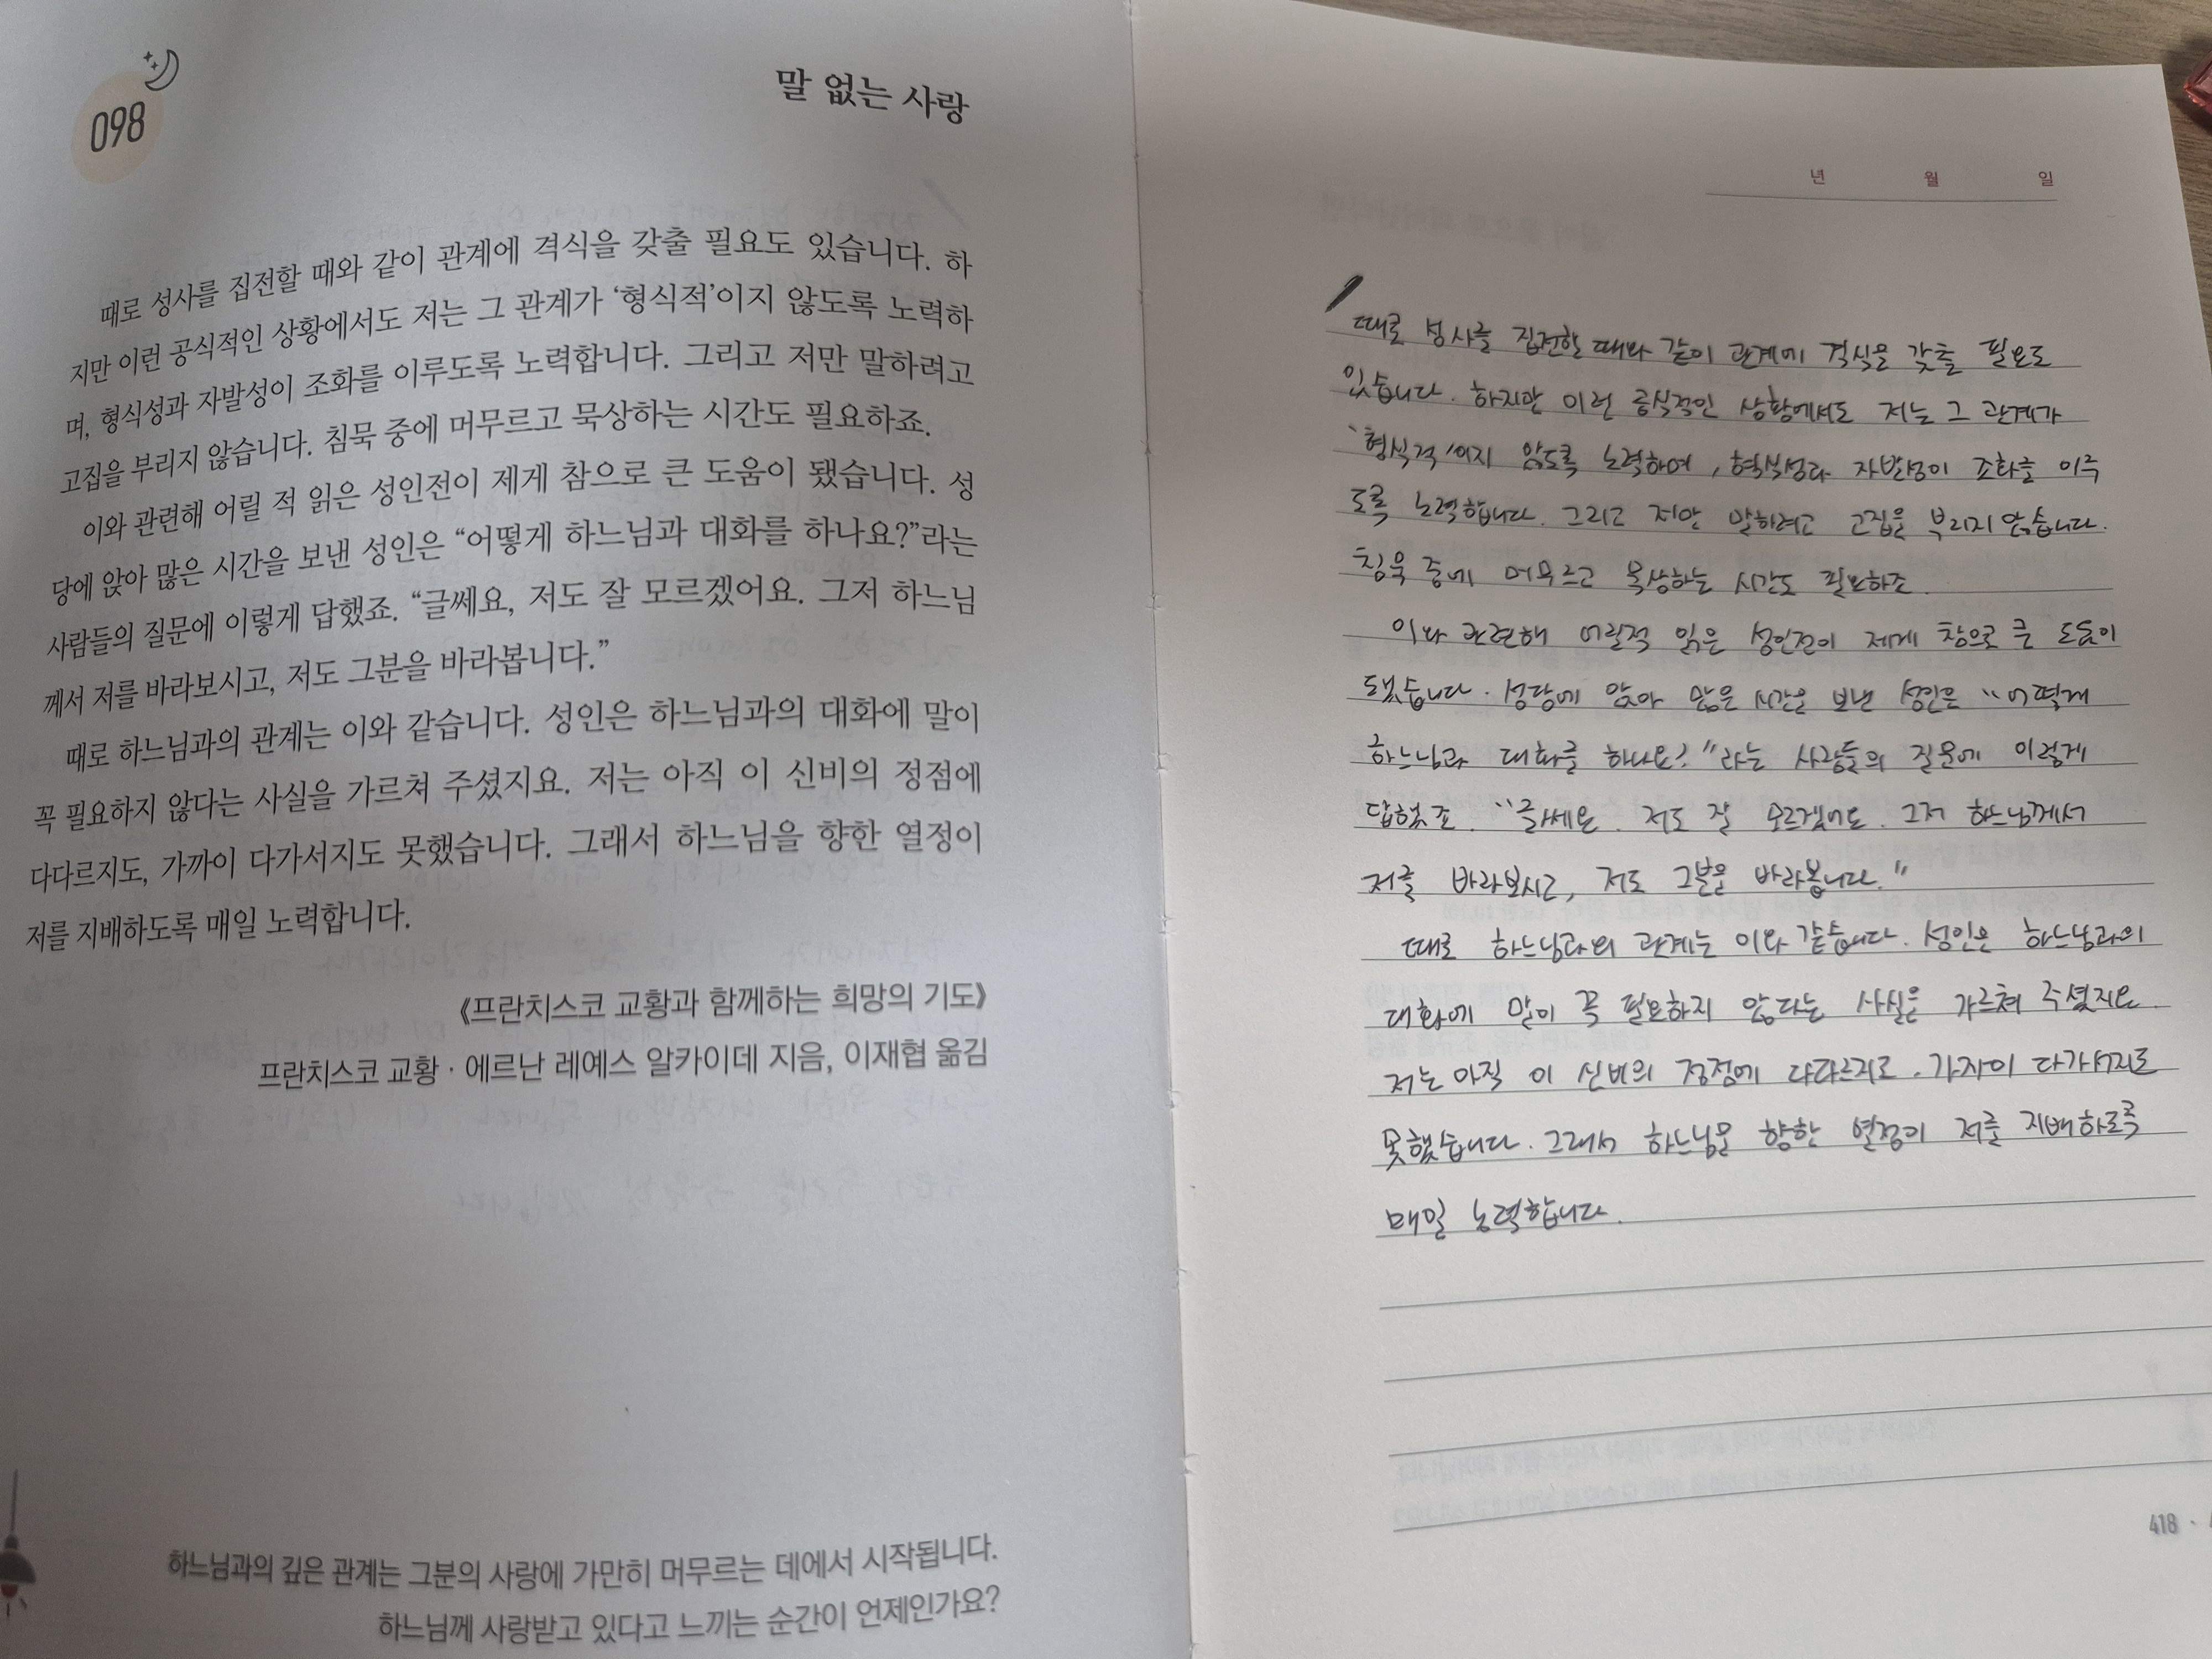 098
말 없는 사랑
때로 성사를 집전할 때와 같이 관계에 격식을 갖출 필요도 있습니다. 하
지만 이런 공식적인 상황에서도 저는 그 관계가 ‘형식적’이지 않도록 노력하
며, 형식성과 자발성이 조화를 이루도록 노력합니다. 그리고 저만 말하려고
고집을 부리지 않습니다. 침묵 중에 머무르고 묵상하는 시간도 필요하죠.
이와 관련해 어릴 적 읽은 성인전이 제게 참으로 큰 도움이 됐습니다. 성
당에 앉아 많은 시간을 보낸 성인은 “어떻게 하느님과 대화를 하나요?”라는
사람들의 질문에 이렇게 답했죠. “글쎄요, 저도 잘 모르겠어요. 그저 하느님
께서 저를 바라보시고, 저도 그분을 바라봅니다.”
때로 하느님과의 관계는 이와 같습니다. 성인은 하느님과의 대화에 말이
꼭 필요하지 않다는 사실을 가르쳐 주셨지요. 저는 아직 이 신비의 정점에
다다르지도, 가까이 다가서지도 못했습니다. 그래서 하느님을 향한 열정이
저를 지배하도록 매일 노력합니다.
《프란치스코 교황과 함께하는 희망의 기도》
프란치스코 교황 · 에르난 레예스 알카이데 지음, 이재협 옮김
하느님과의 깊은 관계는 그분의 사랑에 가만히 머무르는 데에서 시작됩니다.
하느님께 사랑받고 있다고 느끼는 순간이 언제인가요?
년 월 일
때로 성사를 집전할 때와 같이 관계에 격식을 갖출 필요도
있습니다. 하지만 이런 공식적인 상황에서도 저는 그 관계가
‘형식적’이지 않도록 노력하며, 형식성과 자발성이 조화를 이루
도록 노력합니다. 그리고 저만 말하려고 고집을 부리지 않습니다.
침묵 중에 머무르고 묵상하는 시간도 필요하죠.
이와 관련해 어릴적 읽은 성인전이 제게 참으로 큰 도움이
됐습니다. 성당에 앉아 많은 시간을 보낸 성인은 “어떻게
하느님과 대화를 하나요?”라는 사람들의 질문에 이렇게
답했죠. “글쎄요. 저도 잘 모르겠어요. 그저 하느님께서
저를 바라보시고, 저도 그분을 바라봅니다.”
때로 하느님과의 관계는 이와 같습니다. 성인은 하느님과의
대화에 말이 꼭 필요하지 않다는 사실을 가르쳐 주셨지요.
저는 아직 이 신비의 정점에 다다르지도, 가까이 다가서지도
못했습니다. 그래서 하느님을 향한 열정이 저를 지배하도록
매일 노력합니다.
418 ·